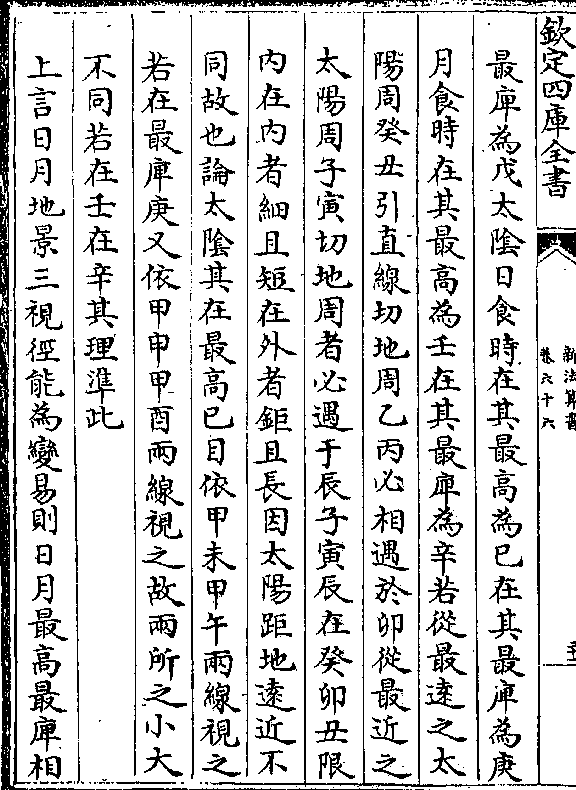 欽定四庫全書
新法算書
卷六十六
最庳為戊太陰日食時在其最高為巳在其最庳為庚
月食時在其最高為壬在其最庳為辛若從最逺之太
陽周癸丑引直線切地周乙丙必相遇於卯從最近之
太陽周子寅切地周者必遇于辰子寅辰在癸卯丑限
内在内者細且短在外者鉅且長因太陽距地逺近不
同故也論太隂其在最高巳目依甲未甲午兩線視之
若在最庳庚又依甲申甲酉兩線視之故兩所之小大
不同若在壬在辛其理準此
上言日月地景三視徑能為變易則日月最高最庳相